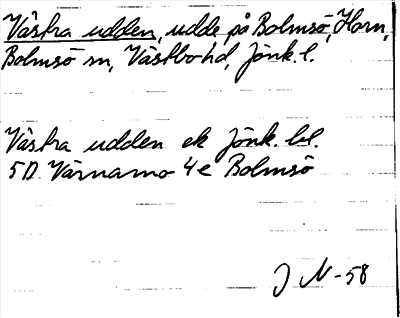 Västra udden, udde på Bolmsö, Horn,
Bolmsö sn, Västbo hd, Jönk. l.
Västra udden ek Jönk. bl.
5D Värnamo 4e Bolmsö
J N-58